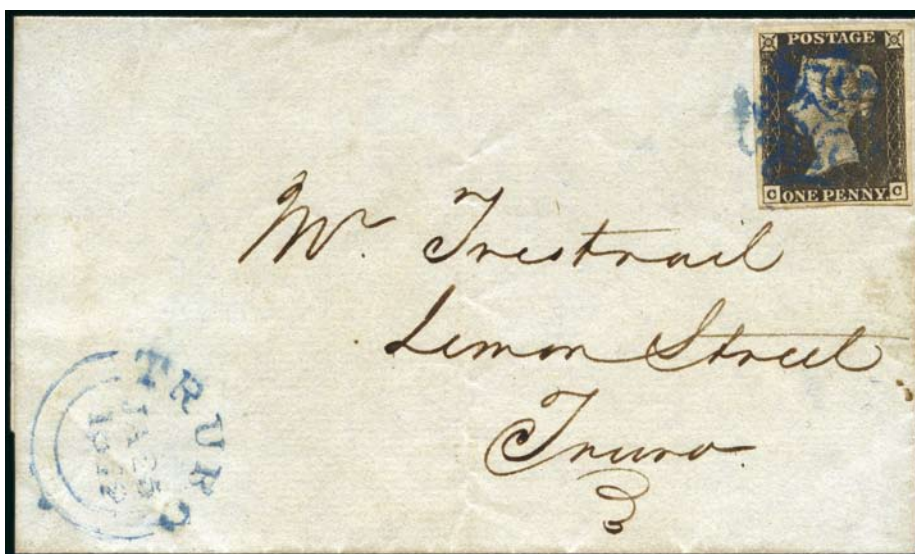 POSTAGE
C ONE PENNY C
Mr. Trestrail
Lemon Street
Truro
TRURO